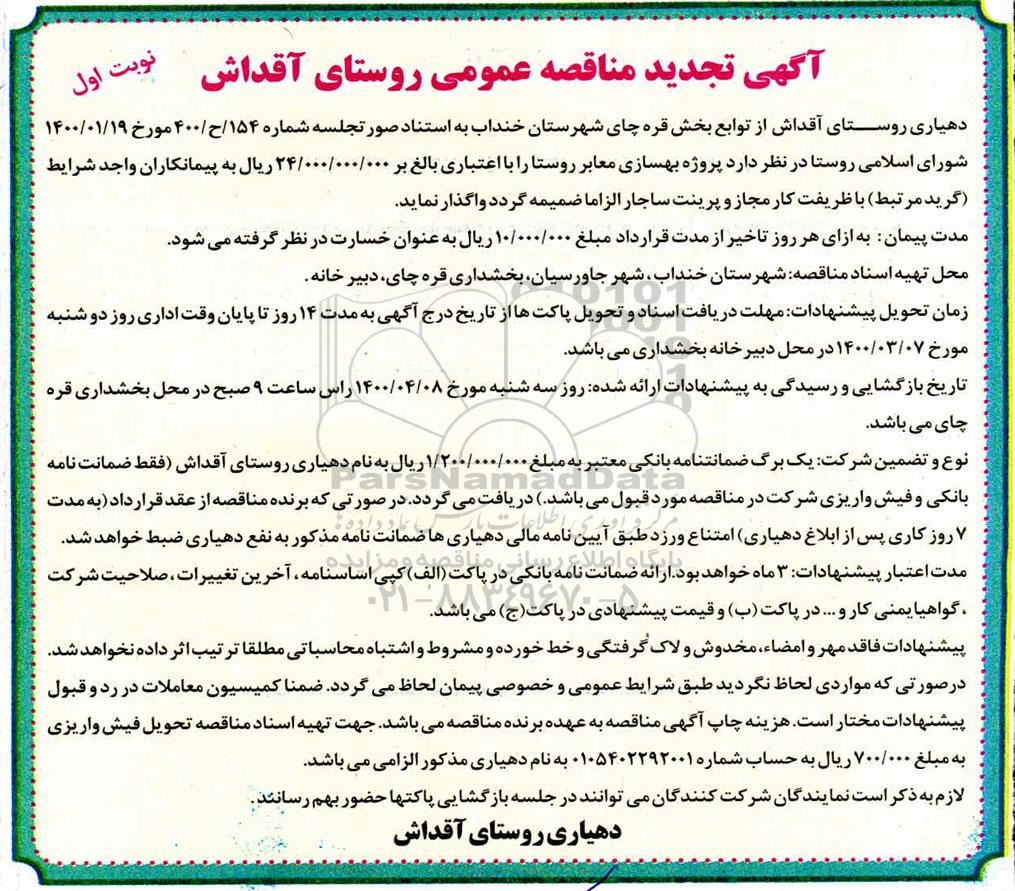 آگهی تجدید مناقصه عمومی روستای آقداش
نوبت اول
دهیاری روستای آقداش از توابع بخش قره چای شهرستان خنداب به استناد صورتجلسه شماره ۱۵۴/ح/۴۰۰ مورخ ۱۴۰۰/۰۱/۱۹
شورای اسلامی روستا در نظر دارد پروژه بهسازی معابر روستا را با اعتباری بالغ بر ۲۴/۰۰۰/۰۰۰/۰۰۰ ریال به پیمانکاران واجد شرایط
(گرید مرتبط) با ظریفت کار مجاز و پرینت ساجار الزاما ضمیمه گردد واگذار نماید.
مدت پیمان : به ازای هر روز تاخیر از مدت قرارداد مبلغ ۱۰/۰۰۰/۰۰۰ ریال به عنوان خسارت در نظر گرفته می شود.
محل تهیه اسناد مناقصه: شهرستان خنداب، شهر جاورسیان، بخشداری قره چای، دبیر خانه.
زمان تحویل پیشنهادات: مهلت دریافت اسناد و تحویل پاکت ها از تاریخ درج آگهی به مدت ۱۴ روز تا پایان وقت اداری روز دو شنبه
مورخ ۱۴۰۰/۰۳/۰۷ در محل دبیرخانه بخشداری می باشد.
تاریخ بازگشایی و رسیدگی به پیشنهادات ارائه شده: روز سه شنبه مورخ ۱۴۰۰/۰۴/۰۸ راس ساعت ۹ صبح در محل بخشداری قره
چای می باشد.
نوع و تضمین شرکت: یک برگ ضمانتنامه بانکی معتبر به مبلغ ۱/۲۰۰/۰۰۰/۰۰۰ ریال به نام دهیاری روستای آقداش (فقط ضمانت نامه
بانکی و فیش واریزی شرکت در مناقصه مورد قبول می باشد.) دریافت می گردد. در صورتی که برنده مناقصه از عقد قرارداد (به مدت
۷ روز کاری پس از ابلاغ دهیاری) امتناع ورزد طبق آیین نامه مالی دهیاری ها ضمانت نامه مذکور به نفع دهیاری ضبط خواهد شد.
مدت اعتبار پیشنهادات: ۳ ماه خواهد بود. ارائه ضمانت نامه بانکی در پاکت (الف) کپی اساسنامه، آخرین تغییرات، صلاحیت شرکت
، گواهیایمنی کار و ... در پاکت (ب) و قیمت پیشنهادی در پاکت(ج) می باشد.
پیشنهادات فاقد مهر و امضاء، مخدوش و لاک گرفتگی و خط خورده و مشروط و اشتباه محاسباتی مطلقا ترتیب اثر داده نخواهد شد.
درصورتی که مواردی لحاظ نگردید طبق شرایط عمومی و خصوصی پیمان لحاظ می گردد. ضمنا کمیسیون معاملات در رد و قبول
پیشنهادات مختار است. هزینه چاپ آگهی مناقصه به عهده برنده مناقصه می باشد. جهت تهیه اسناد مناقصه تحویل فیش واریزی
به مبلغ ۷۰۰/۰۰۰ ریال به حساب شماره ۰۱۰۵۴۰۲۲۹۲۰۰۱ به نام دهیاری مذکور الزامی می باشد.
لازم به ذکر است نمایندگان شرکت کنندگان می توانند در جلسه بازگشایی پاکتها حضور بهم رسانند.
دهیاری روستای آقداش
ParsNamadData
مرکز فرآوری اطلاعات پارس نماد داده ها
پایگاه اطلاع رسانی مناقصه و مزایده
۰۲۱-۸۸۳۴۹۶۷۰-۵